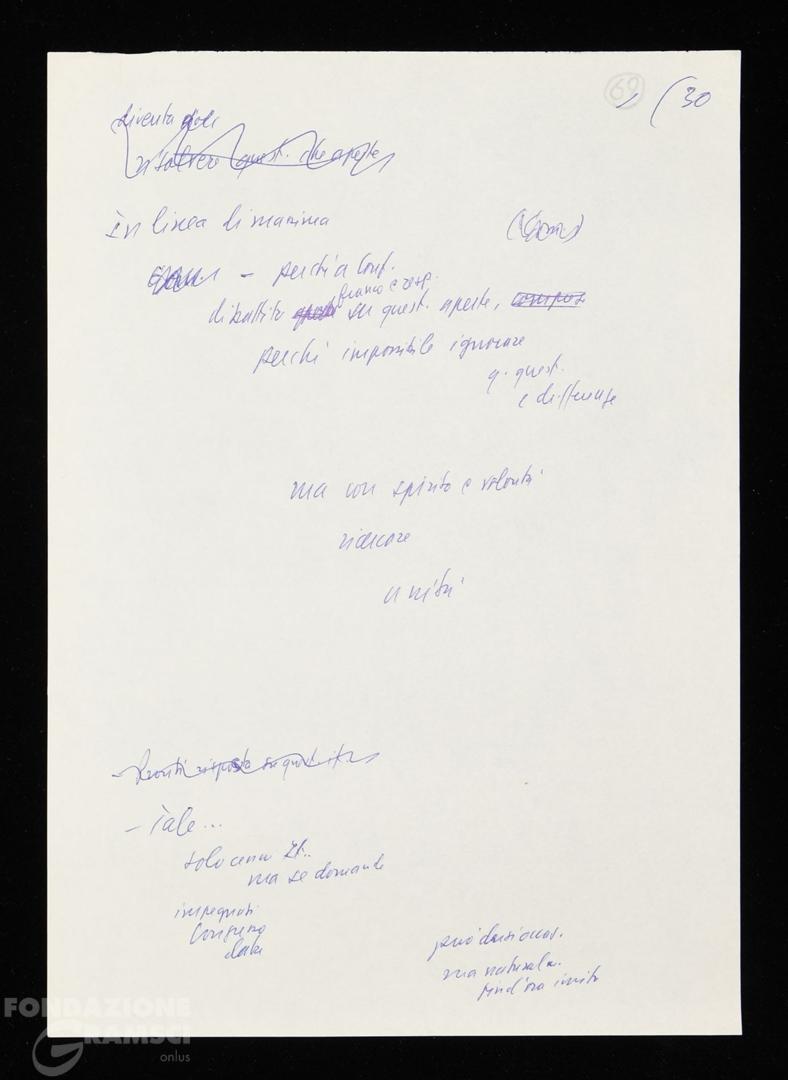 69 (30
diventa
risolvere quest. che aperte
In linea di massima
- perché a Conf.
franco e resp.
dibattito su quest. aperte,
perché impossibile ignorare
q. quest.
e differenze
ma con spirito e volontà
ricercare
unità
risposta su quest.
- Tale...
solo cenni
ma se domande
impegnati
Congresso
può
ma natural.
sin d'ora invito
FONDAZIONE
GRAMSCI
onlus